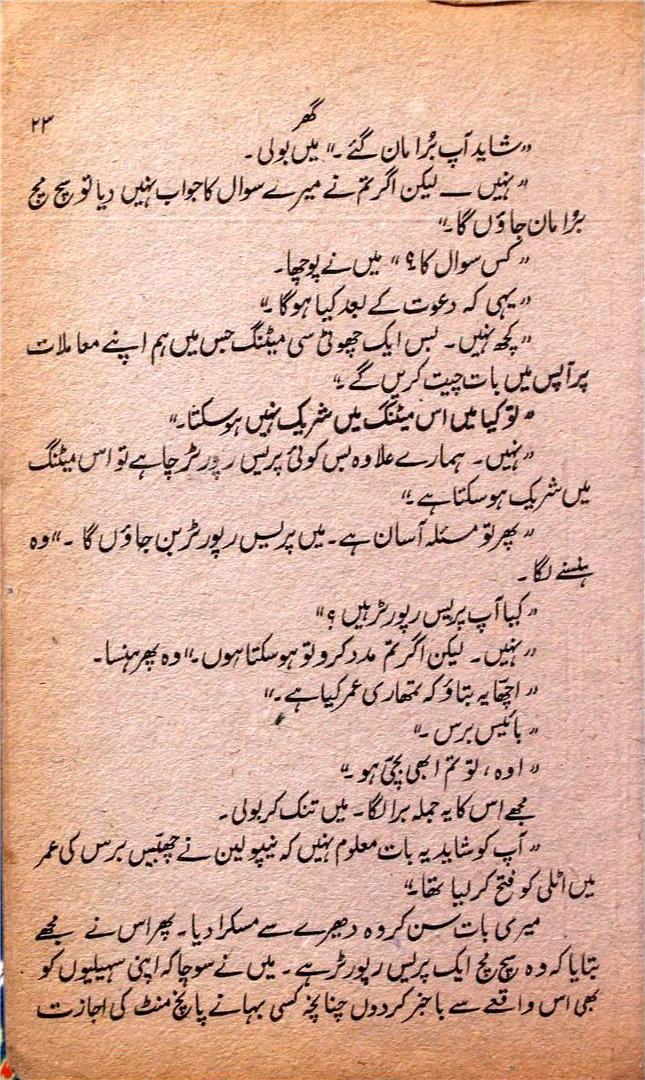 گھر ۲۳
”شاید آپ بُرا مان گئے۔“ میں بولی۔
”نہیں ــ لیکن اگر تم نے میرے سوال کا جواب نہیں دیا تو سچ مچ
بُرا مان جاؤں گا۔“
”کس سوال کا؟“ میں نے پوچھا۔
”یہی کہ دعوت کے بعد کیا ہوگا۔“
”کچھ نہیں۔ بس ایک چھوٹی سی میٹنگ جس میں ہم اپنے معاملات
پر آپس میں بات چیت کریں گے۔“
”تو کیا میں اس میٹنگ میں شریک نہیں ہوسکتا۔“
”نہیں۔ ہمارے علاوہ بس کوئی پریس رپورٹر چاہے تو اس میٹنگ
میں شریک ہوسکتا ہے۔“
”پھر تو مسئلہ آسان ہے۔ میں پریس رپورٹر بن جاؤں گا۔“ وہ
ہنسنے لگا۔
”کیا آپ پریس رپورٹر ہیں؟“
”نہیں۔ لیکن اگر تم مدد کرو تو ہوسکتا ہوں۔“ وہ پھر ہنسا۔
”اچھا یہ بتاؤ کہ تمھاری عمر کیا ہے۔“
”بائیس برس۔“
”اوہ، تو تم ابھی بچّی ہو۔“
مجھے اس کا یہ جملہ برا لگا۔ میں تنک کر بولی۔
”آپ کو شاید یہ بات معلوم نہیں کہ نیپولین نے چھبّیس برس کی عمر
میں اٹلی کو فتح کر لیا تھا۔“
میری بات سن کر وہ دھیرے سے مسکرا دیا۔ پھر اس نے مجھے
بتایا کہ وہ سچ مچ ایک پریس رپورٹر ہے۔ میں نے سوچا کہ اپنی سہیلیوں کو
بھی اس واقعے سے باخبر کردوں چنانچہ کسی بہانے پانچ منٹ کی اجازت